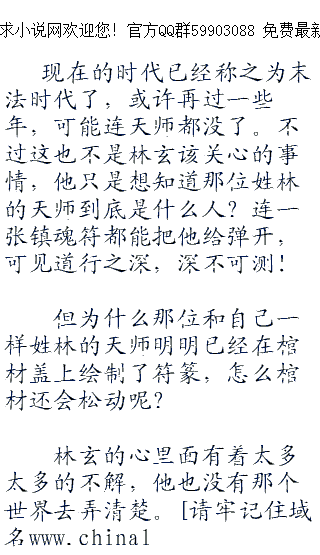 求小说网欢迎您! 官方QQ群59903088 免费最新
现在的时代已经称之为末
法时代了，或许再过一些
年，可能连天师都没了。不
过这也不是林玄该关心的事
情，他只是想知道那位姓林
的天师到底是什么人？连一
张镇魂符都能把他给弹开，
可见道行之深，深不可测！
但为什么那位和自己一
样姓林的天师明明已经在棺
材盖上绘制了符篆，怎么棺
材还会松动呢？
林玄的心里面有着太多
太多的不解，他也没有那个
世界去弄清楚。[请牢记住域
名www.china1